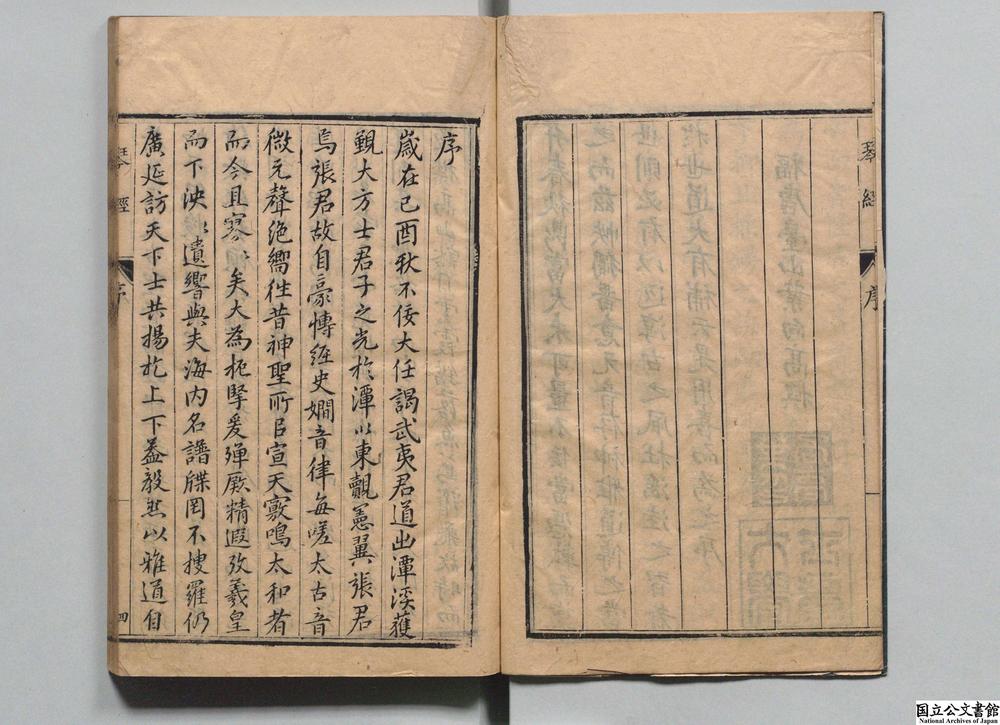 琴經
序
序
歲在已酉秋不佞大任謁武夷君道出潭溪獲
覯大方士君子之光於潭以東覿憲翼張君
焉張君故自豪慱經史嫺音律每嗟太古音
微元聲絶嚮徃昔神聖所㠯宣天竅鳴太和者
而今且寥〻矣大為扼擥爰殫厥精遐攷羲皇
而下泱〻遺響與夫海内名譜牒罔不搜羅仍
廣延訪天下士共揚扢上下益毅然以雅道自
琴經
序
四
国立公文書館
National Archives of Japan